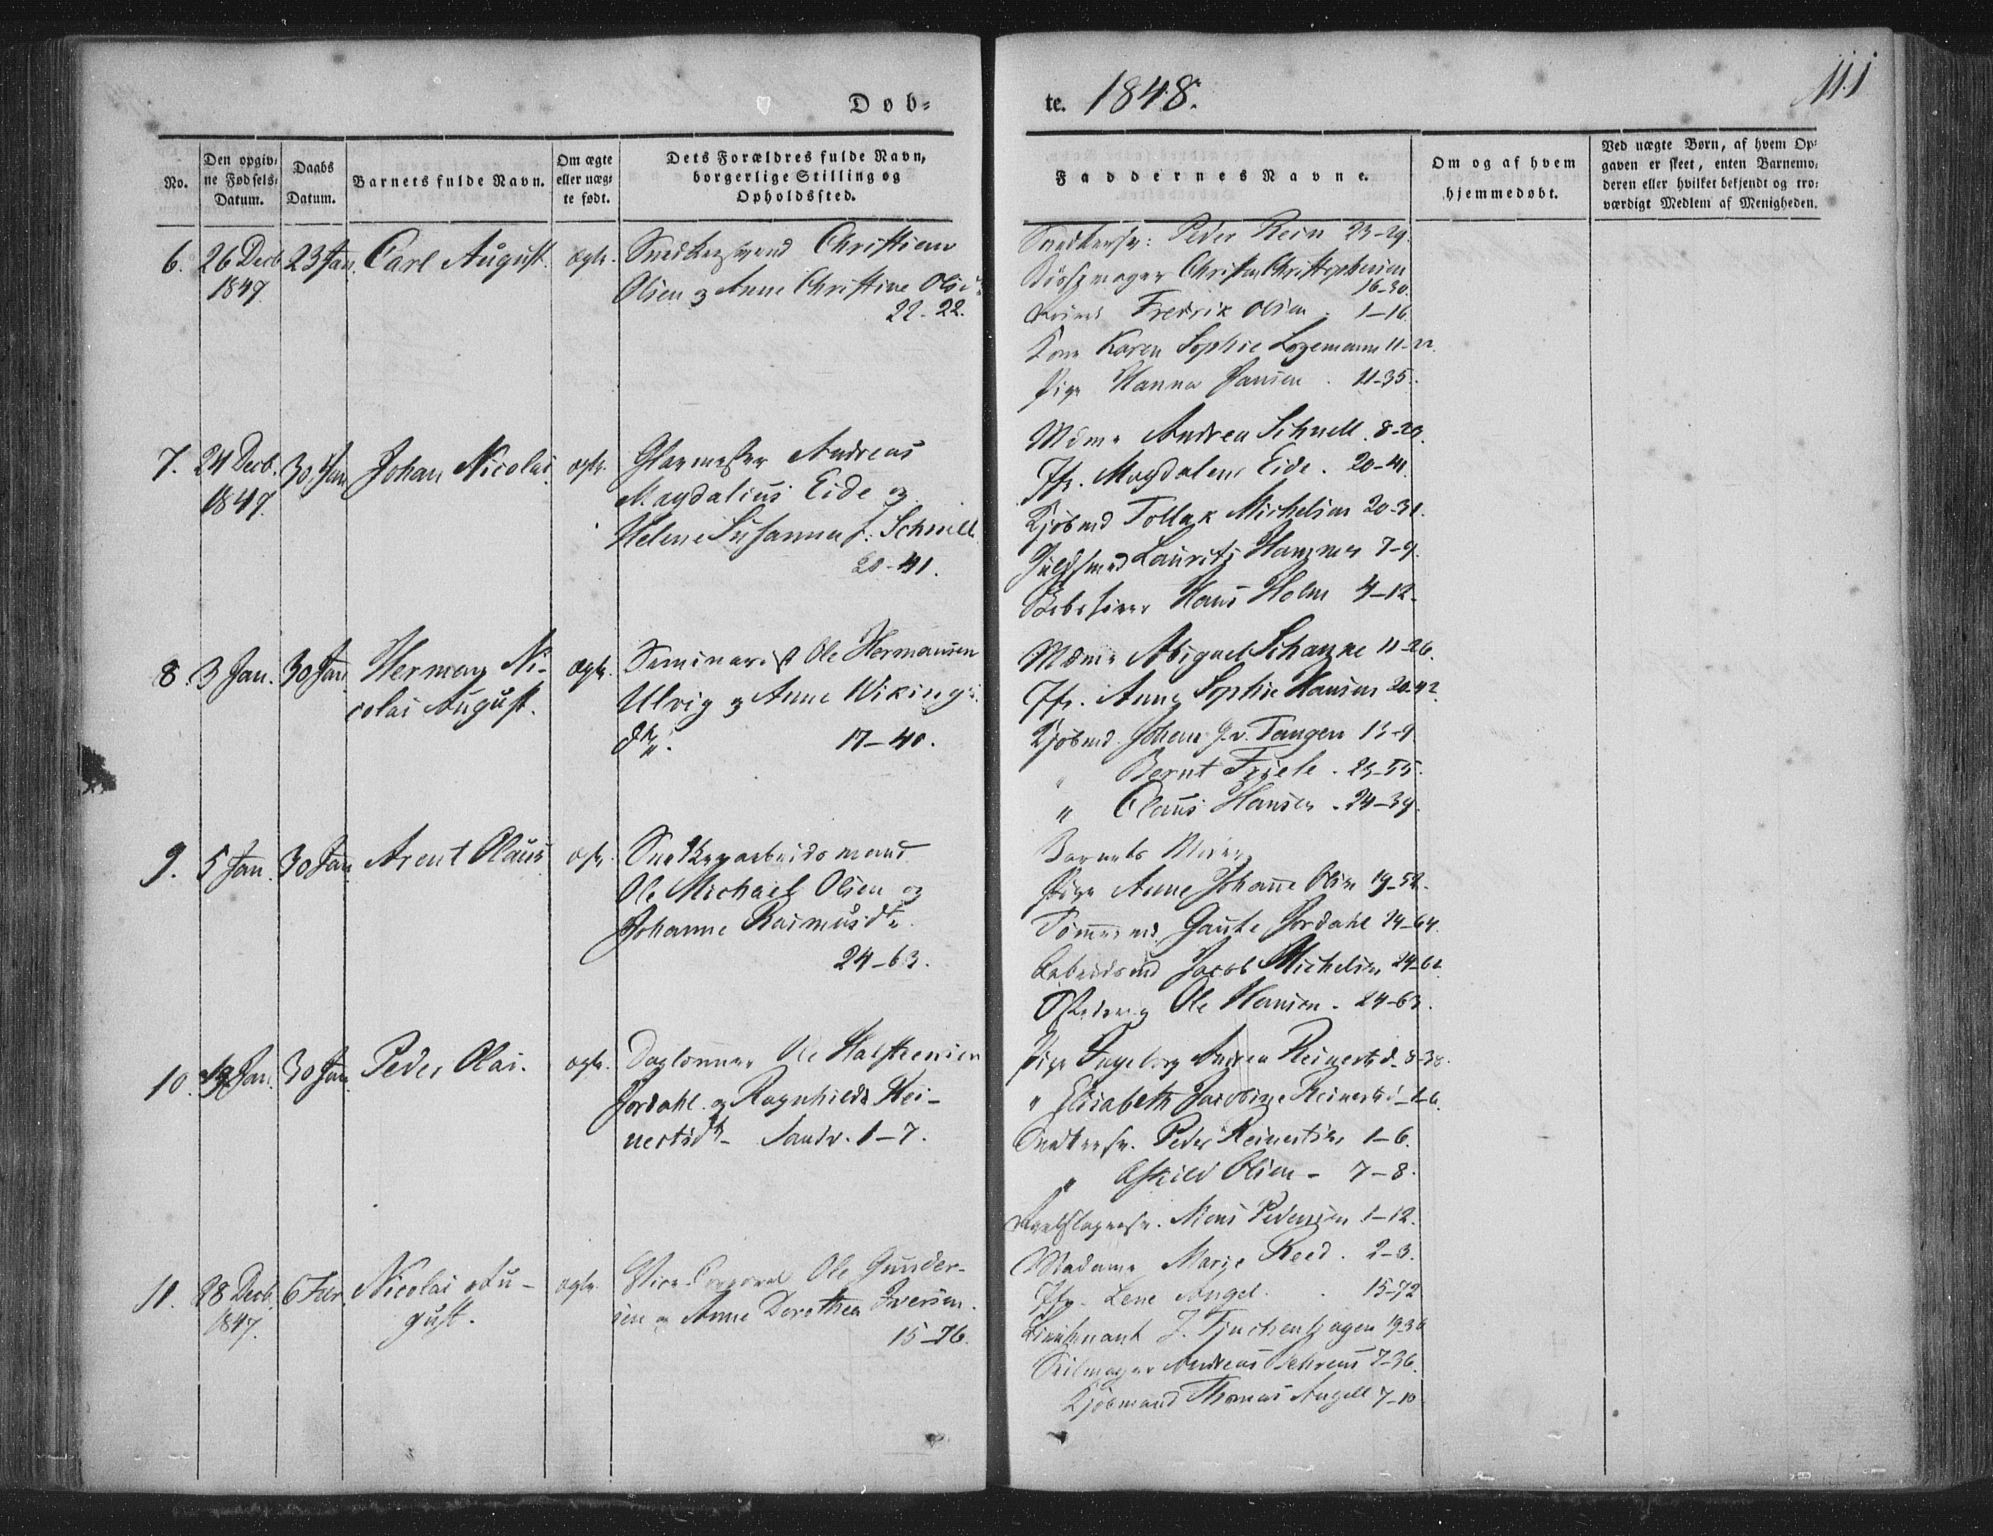 Døb-
te. 1848.
111
No.
Den opgiv-
ne Fødsels-
Datum.
Daabs
Datum.
Barnets fulde Navn.
Om ægte
eller uæg-
te født.
Dets Forældres fulde Navn,
borgerlige Stilling og
Opholdssted.
Faddernes Navne.
Om og af hvem
hjemmedøbt.
Ved uægte Børn, af hvem Op-
gaven er skeet, enten Barnemo-
deren eller hvilket bekjendt og tro-
værdigt Medlem af Menigheden.
6. 26 Decb. 23 Jan. Carl August. ægte.
1847
Snedkersvend Christian
Olsen og Anne Christine Olsd.
22-22.
Snedkersv: Peder Rein 23-29.
Christen Christophersen
16-30.
Fredrik Olsen 1-16
Kone Karen Sophie Logemann 11-22.
Pige Hanna Jansen. 11-35.
7. 24 Decb. 30 Jan. Johan Nicolai. ægte.
1847.
Glarmester Andreas
Magdalius Eide og
Helene Susanna f. Schnell
20-41.
Mdme Andrea Schnell. 8-20.
Jfr. Magdalene Eide. 20-41.
Kjøbmd Tollak Michelsen 20-31.
Guldsmed Lauritz 7-9.
Hans Holm 4-12.
8. 3 Jan. 30 Jan. Herman Ni-
colai August. ægte.
Seminarist Ole Hermansen
Ulvig og Anne Wikings-
dtr. 17-40.
Mdme Abigael Schanke 11-26.
Jfr. Anne Sophie Hansen 20-42
Kjøbmd. Johan J. v. Tangen 13-9
" Bernt Friele. 23-55.
" Claus Hansen. 24-39.
9. 5 Jan. 30 Jan. Arent Olaus ægte.
Snedkerarbeidsmand
Ole Michael Olsen og
Johanne Rasmusdtr.
24-63.
Barnets Moder
Pige Anne Johanne Olsen 19-52.
Tømmermd. Gaute Jordahl 24-64.
Arbeidsmd Jacob Michelsen 24-62
Ole Hansen. 24-63.
10. 30 Jan. Peder Olai. ægte.
Daglønner Ole Halstensen
Jordahl og Ragnhilde Rei-
nertsdtr- Sandv. 1-7.
Pige Ingeborg Andrea Reinertsd. 8-38.
" Elisabeth Jacobine Reinertsd. 1-6.
Snedkersv. Peder Reinertsen 1-6.
" Askild Olsen - 7-8.
Mons Pedersen 1-12.
11. 28 Decb. 6 Febr. Nicolai Au-
1847.
gust. ægte.
Vice-Corporal Ole Gunder-
sen og Anne Dorothea Iversen.
15-76.
Madame Marie Reed. 2-3.
Jfr. Lene Angel. 15-72
Lieutenant J. 19-36
Seilmager Andreas Behrens 7-36.
Kjøbmand Thomas Angell 7-10